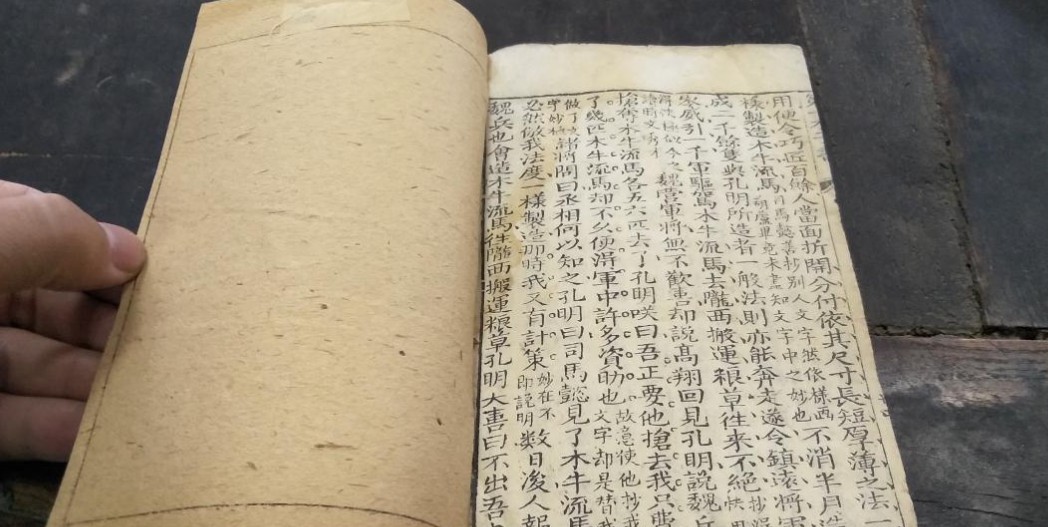 用便令巧匠百餘人當面拆開分付依其尺寸長短厚薄之法一
樣製造木牛流馬司馬懿善抄別人文字然依樣画葫蘆畢竟未盡知文字中之妙也不消半月造
成二千餘隻與孔明所造者一般法則亦能奔走遂令鎮遠將軍
威引一千軍驅駕木牛流馬去隴西搬運粮草往來不絶
魏營軍將無不歡喜却說高翔回見孔明說魏兵
搶奪木牛流馬各五六匹去了孔明咲曰吾正要他搶去我只費
了幾匹木牛流馬却不久便得軍中許多資助也故意使他抄我文字却是替我
做了文字妙妙諸將問曰丞相何以知之孔明曰司馬懿見了木牛流馬
必然倣我法度一樣製造那時我又有計策妙在不即説明數日後人報
魏兵也會造木牛流馬往隴西搬運粮草孔明大喜曰不出吾